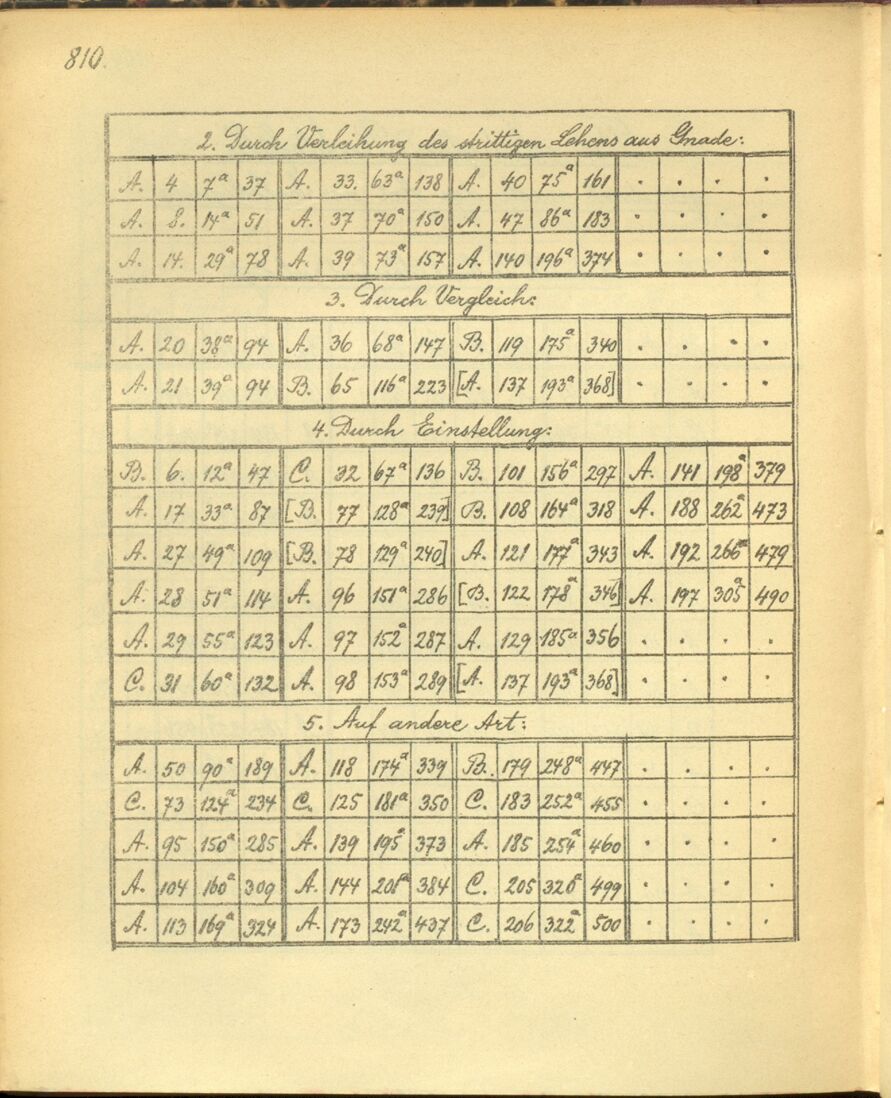 810.
2. Durch Verleihung des strittigen Lehens aus Gnade:
A. 4 7a 37 A. 33. 63a 138 A. 40 75a 161 . . . .
A. 8. 14a 51 A. 37 70a 150 A. 47 86a 183 . . . .
A. 14. 29a 78 A. 39 73a 157 A. 140 196a 374 . . . .
3. Durch Vergleich:
A. 20 38a 94 A. 36 68a 147 B. 119 175a 340 . . . .
A. 21 39a 94 B. 65 116a 223 [A. 137 193a 368] . . . .
4. Durch Einstellung:
B. 6. 12a 47 C. 32 67a 136 B. 101 156a 297 A. 141 198a 379
A. 17 33a 87 [B. 77 128a 239] B. 108 164a 318 A. 188 262a 473
A. 27 49a 109 [B. 78 129a 240] A. 121 177a 343 A. 192 266a 479
A. 28 51a 114 A. 96 151a 286 [B. 122 178a 346] A. 197 305a 490
A. 29 55a 123 A. 97 152a 287 A. 129 185a 356 . . . .
C. 31 60a 132 A. 98 153a 289 [A. 137 193a 368] . . . .
5. Auf andere Art:
A. 50 90a 189 A. 118 174a 339 B. 179 248a 447 . . . .
C. 73 124a 234 C. 125 181a 350 C. 183 252a 455 . . . .
A. 95 150a 285 A. 139 195a 373 A. 185 254a 460 . . . .
A. 104 160a 309 A. 144 201a 384 C. 205 320a 499 . . . .
A. 113 169a 324 A. 173 242a 437 C. 206 322a 500 . . . .